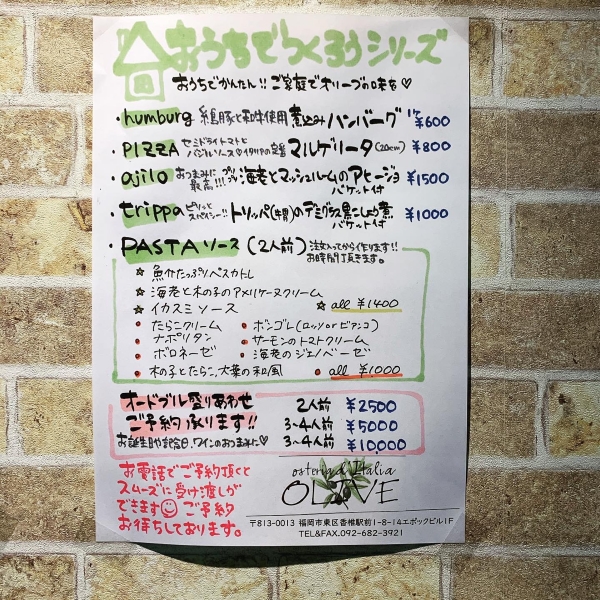 おうちでつくろうシリーズ
おうちでかんたん!! ご家庭でオリーブの味を♡
・humburg 糸島豚と和牛使用 煮込みハンバーグ 1ケ¥600
・PIZZA セミドライトマトとバジルソース♡イタリアの定番 マルゲリータ(20cm) ¥800
・ajilo おつまみに最高!!! プリプリ海老とマッシュルームのアヒージョ バケット付 ¥1500
・trippa ピリッとスパイシー!! トリッパ(牛胃)のデミグラス黒こしょう煮 バケット付 ¥1000
・PASTAソース(2人前) 注文入ってから作ります!! お時間頂きます。
☆魚介たっぷりペスカトレ
☆海老と木の子のアメリケーヌクリーム
☆イカスミソース ☆ all ¥1400
・たらこクリーム ・ボンゴレ(ロッソorビアンコ)
・ナポリタン ・サーモンのトマトクリーム
・ボロネーゼ ・海老のジェノベーゼ
・木の子とたらこ、大葉の和風 ・all ¥1,000
オードブル盛りあわせ 2人前 ¥2500
ご予約承ります!! 3~4人前 ¥5000
お誕生日や記念日、ワインのおつまみに♡ 3~4人前 ¥10,000
お電話でご予約頂くと
スムーズに受け渡しが
できます ご予約
お待ちしております。
osteria d'Italia
OLIVE
〒813-0013 福岡市東区香椎駅前1-8-14エポックビル1F
TEL&FAX.092-682-3921